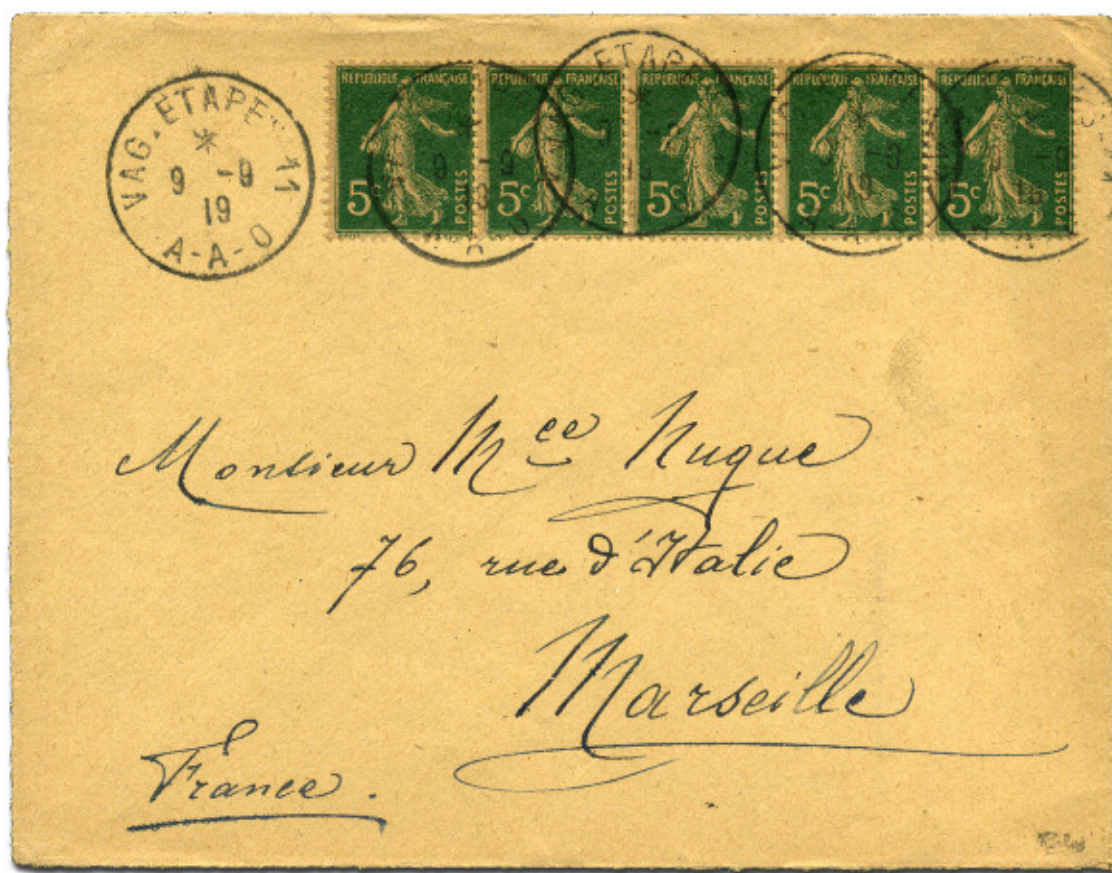 VAG. ETAPE 11
*
9 -9
19
A-A-O
REPUBLIQUE FRANÇAISE
5c
POSTES
REPUBLIQUE FRANÇAISE
5c
POSTES
REPUBLIQUE FRANÇAISE
5c
POSTES
REPUBLIQUE FRANÇAISE
5c
POSTES
REPUBLIQUE FRANÇAISE
5c
POSTES
Monsieur Mce Nugue
76, rue d'Italie
Marseille
France.